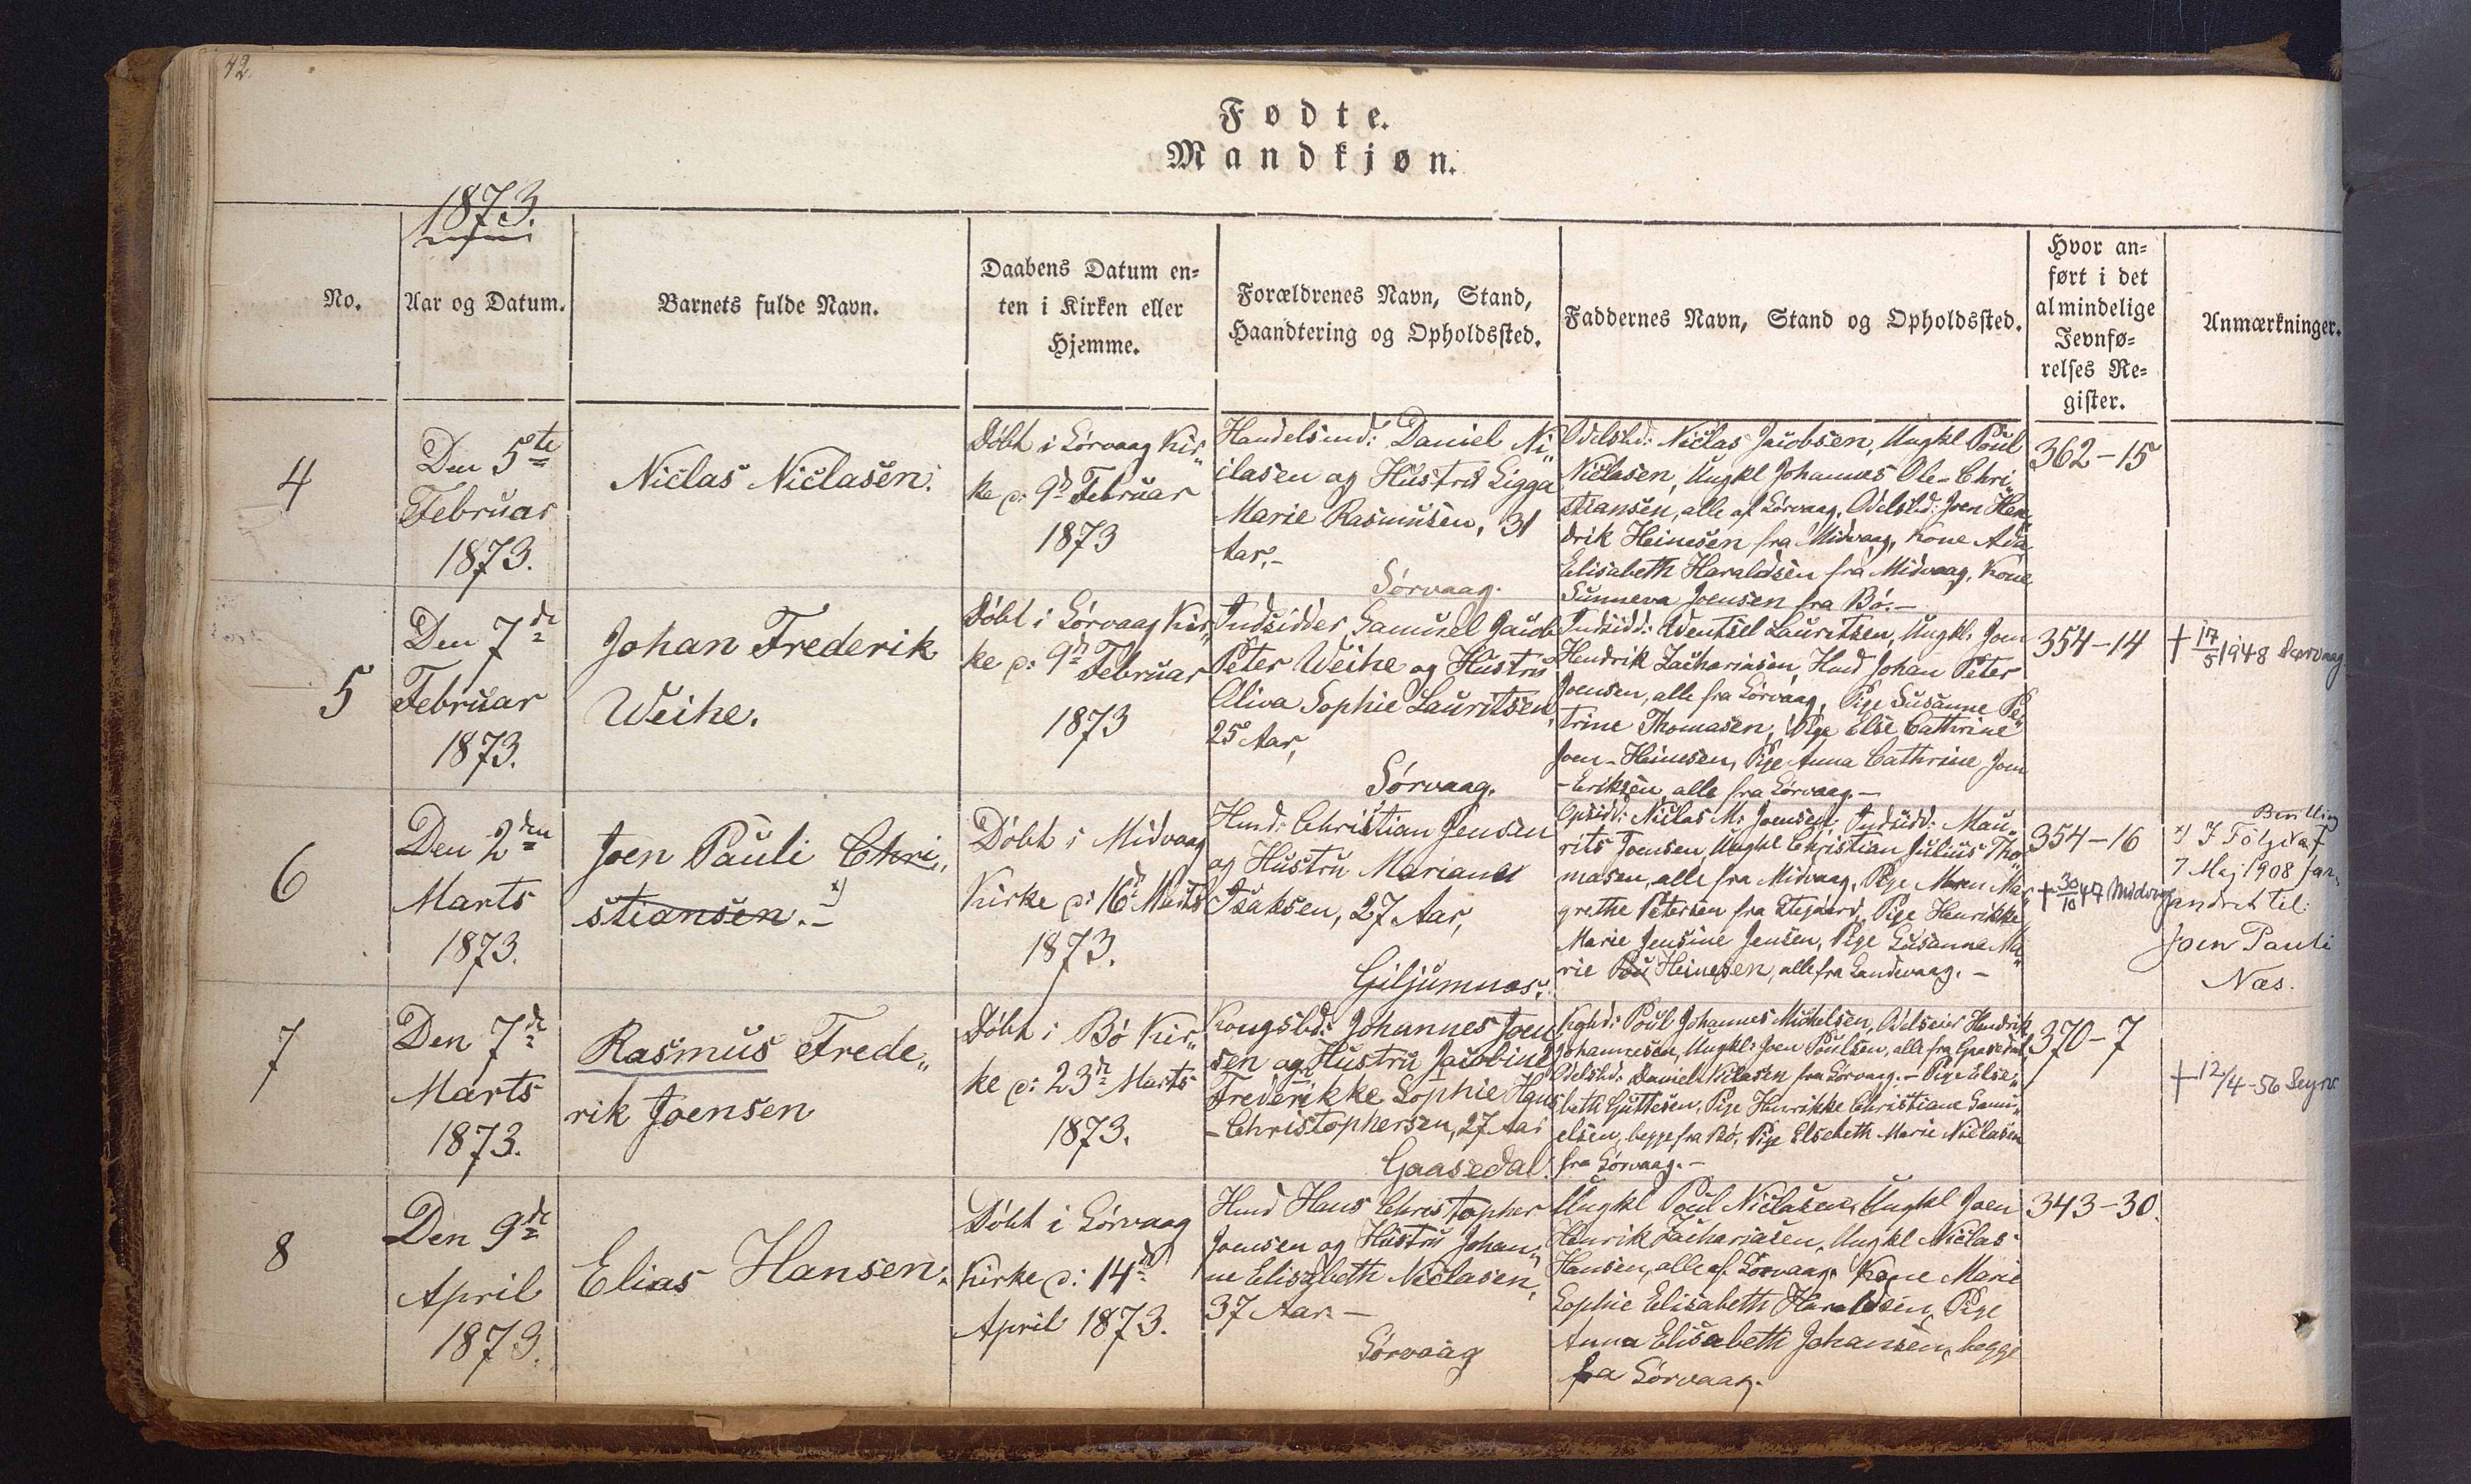 42.
Fødte.
Mandkjøn.
1873.
No.
Aar og Datum.
Barnets fulde Navn.
Daabens Datum en=
ten i Kirken eller
Hjemme.
Forældrenes Navn, Stand,
Haandtering og Opholdssted.
Faddernes Navn, Stand og Opholdssted.
Hvor an=
ført i det
almindelige
Jevnfø=
relses Re=
gister.
Anmærkninger.
4
Den 5te
Februar
1873.
Niclas Niclasen.
Døbt i Sørvaag Kir„
ke d: 9d Februar
1873
Handelsmd: Daniel Ni„
clasen og Hustru Sigga
Marie Rasmusen, 31
Aar,-
Sørvaag.
Odelsbd: Niclas Jacobsen, Ungkl Poul
Niclasen, Ungkl Johannes Ole-Chri„
stiansen, alle af Sørvaag, Odelsbd: Joen Hen„
drik Heinesen fra Midvaag, Kone Ada
Elisabeth Haraldsen fra Midvaag, Kone
Sunneva Joensen fra Bø.-
362-15
5
Den 7de
Februar
1873.
Johan Frederik
Weihe.
Døbt i Sørvaag Kir„
ke d: 9d Februar
1873
Indsidder Samuel Jacob
Peter Weihe og Hustru
Oliva Sophie Lauritsen,
25 Aar,
Sørvaag.
Indsidd: Wentsel Lauritsen, Ungkl: Joen
Hendrik Zachariasen, Hmd Johan Peter
Joensen, alle fra Sørvaag, Pige Susanne Pe„
trine Thomasen, Pige Else Cathrine
Joen-Heinesen, Pige Anna Cathrine Joen
-Eriksen, alle fra Sørvaag.-
354-14
† 17/5 1948 Sørvaag
6
Den 2den
Marts
1873.
Joen Pauli Chri„
stiansen.- x)
Døbt i Midvaag
Kirke d: 16d Marts
1873.
Hmd: Christian Jensen
og Hustru Mariane
Isaksen, 27 Aar,
Giljumnæs.
Opsidd: Niclas M: Joensen, Indsidd: Mau„
rits Joensen, Ungkl Christian Julius Tho„
masen, alle fra Midvaag, Pige Maren Mar„
grethe Petersen fra Stegaard, Pige Henrikke
Marie Jensine Jensen, Pige Susanne Ma„
rie Heinesen, alle fra Sandevaag.-
354-16
† 30/10 47 Midvaag
x) I Følge af
7 Maj 1908 for„
andret til:
Joen Pauli
Næs.
7
Den 7de
Marts
1873.
Rasmus Frede„
rik Joensen
Døbt i Bø Kir„
ke d: 23d Marts
1873.
Kongsbd: Johannes Joen
sen og Hustru Jacobine
Frederikke Sophie Hans
-Christophersen, 27 Aar
Gaasedal.
Kgbd: Poul Johannes Michelsen, Odelseier Hendrik
Johannesen, Ungkl: Joen Poulsen, alle fra Gaasedal,
Odelsbd: Daniel Niclasen fra Sørvaag.- Pige Elsa„
beth Guttesen, Pige Henrikke Christiane Samu„
elsen, begge fra Bø, Pige Elsebeth Marie Niclasen
fra Sørvaag.-
370-7
† 12/4-56
8
Den 9de
April
1873.
Elias Hansen.
Døbt i Sørvaag
Kirke d: 14de
April 1873.
Hmd Hans Christopher
Joensen og Hustru Johan„
ne Elisabeth Niclasen,
37 Aar.-
Sørvaag
Ungkl Poul Niclasen, Ungkl Joen
Henrik Zachariasen, Ungkl Niclas
Hansen, alle af Sørvaag. Kone Marie
Sophie Elisabeth Haraldsen, Pige
Anna Elisabeth Johansen, begge
fra Sørvaag.
343-30.